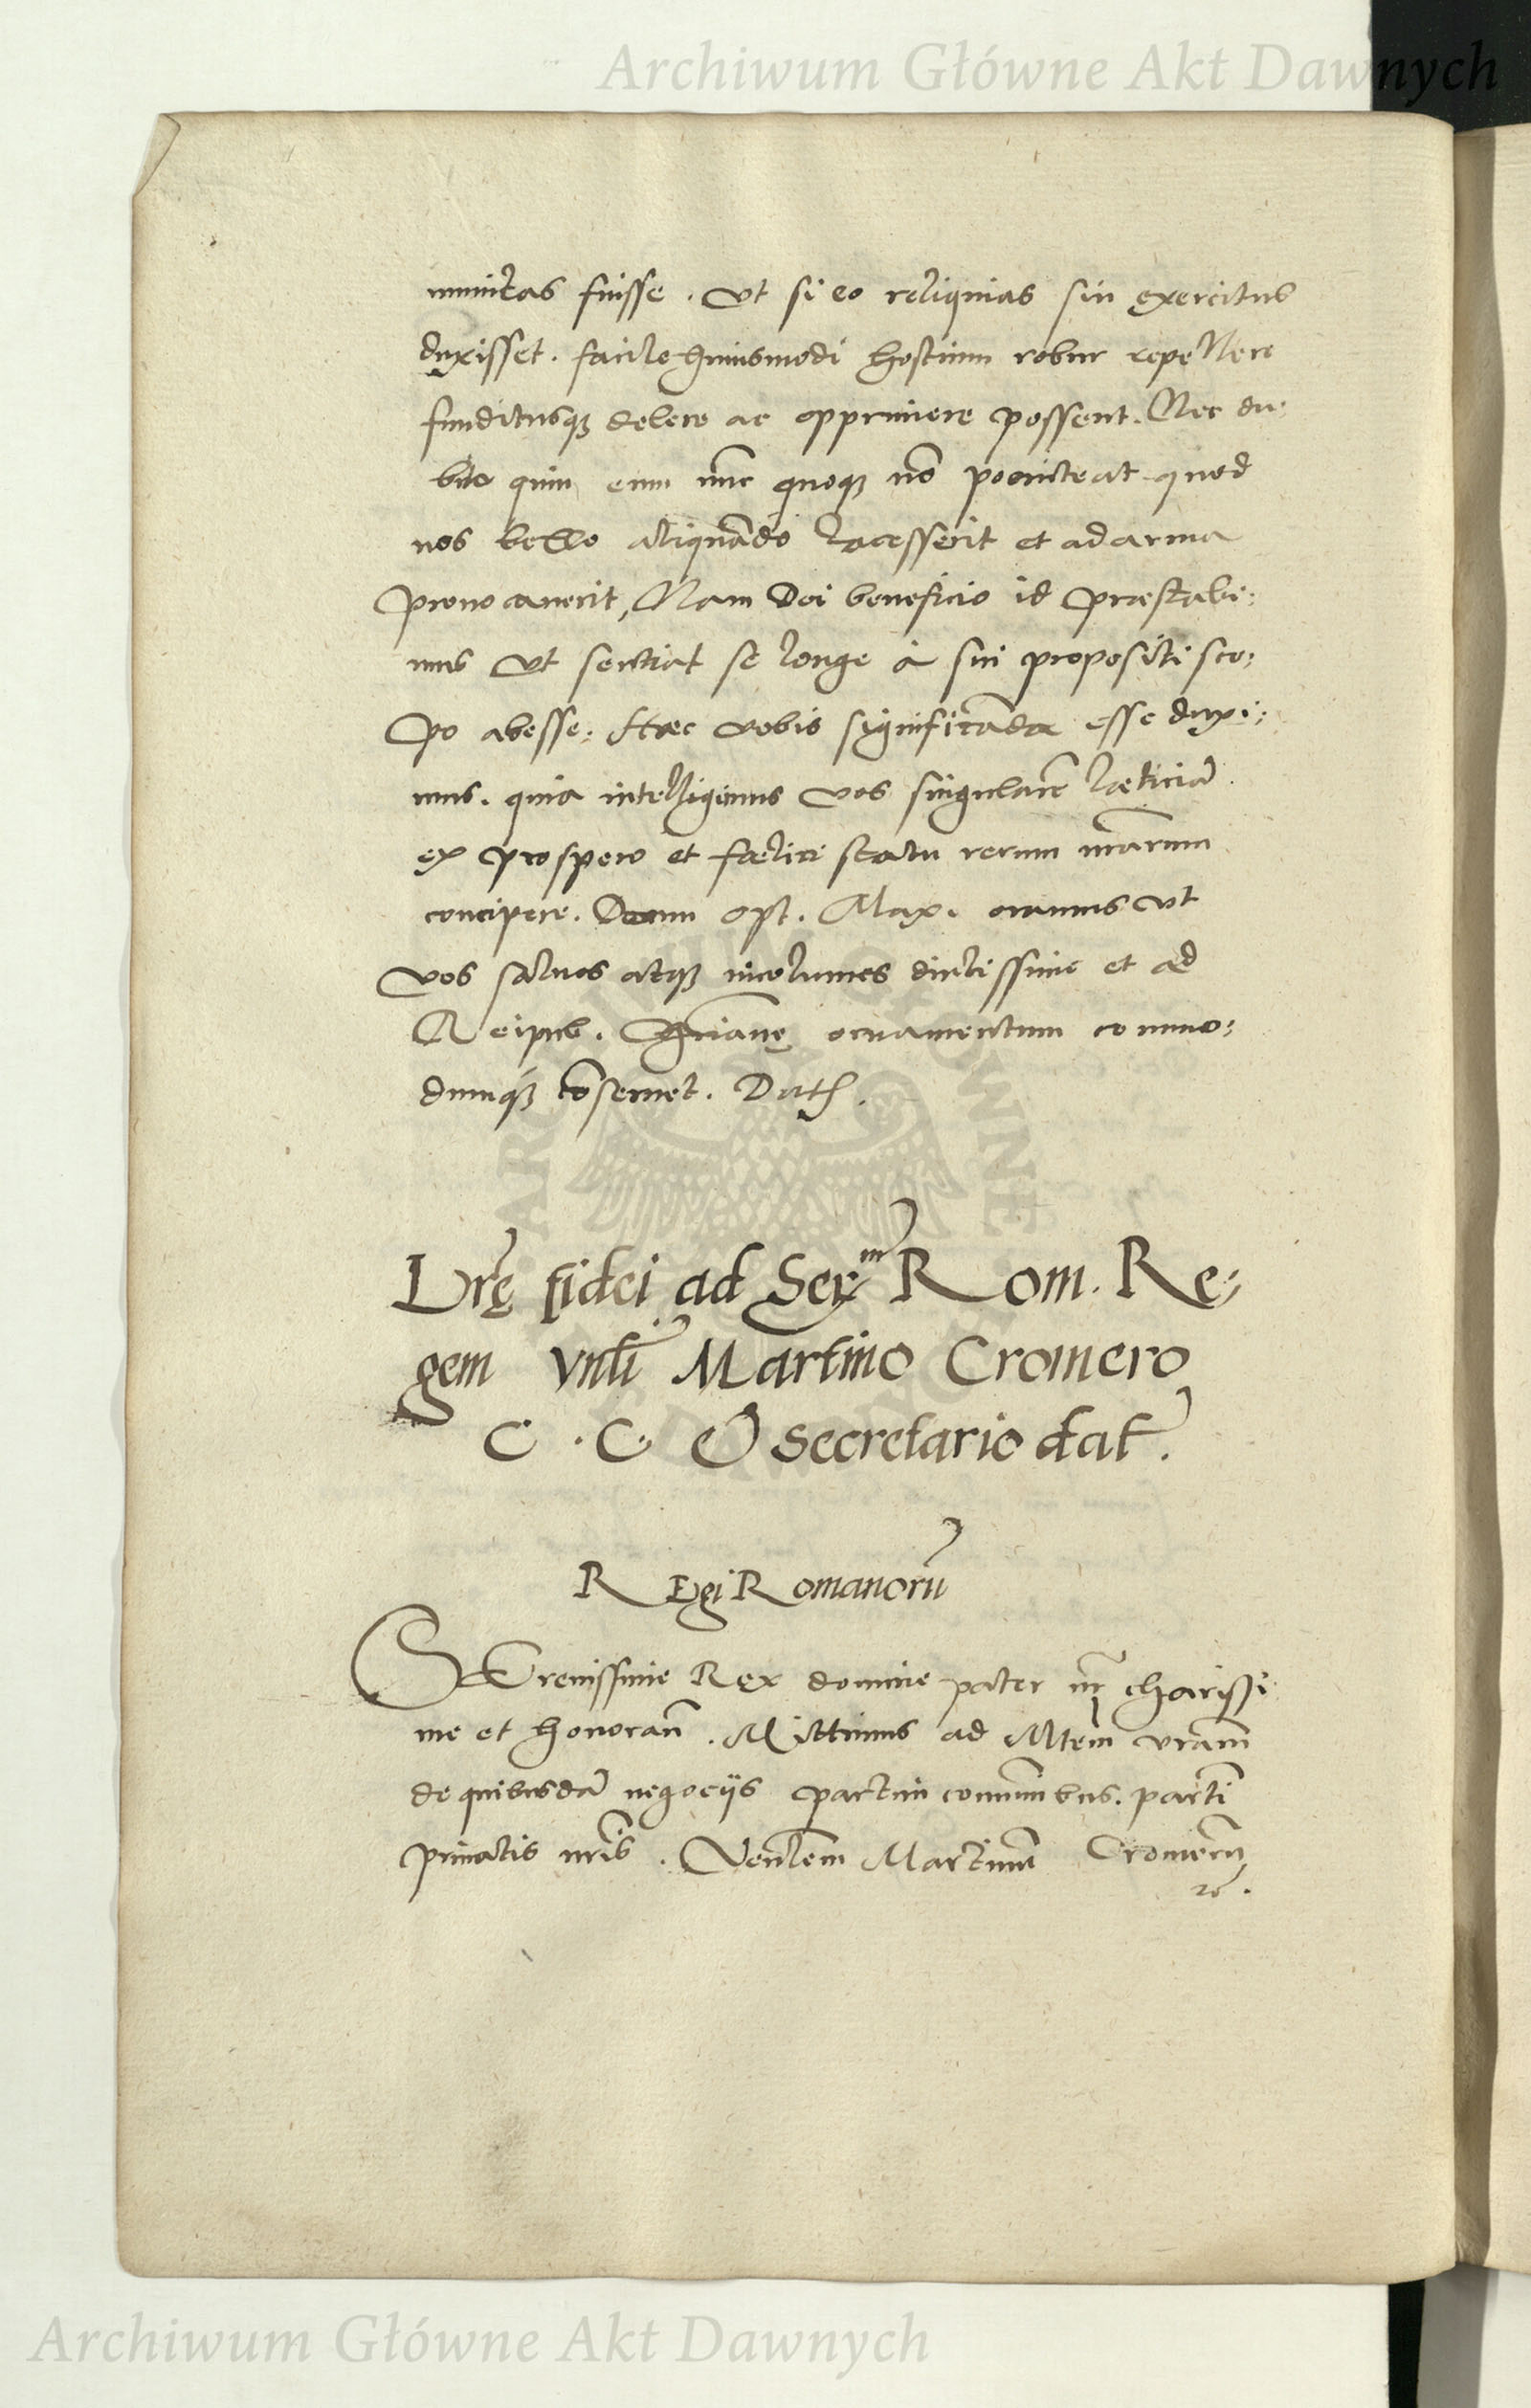 Archiwum Główne Akt Dawnych
munitas fuisse. Ut si eo reliquias sui exercitus
duxisset. facile huiusmodi hostium robur repellere
funditusq; delere ac opprimere possent. Nec du:
bito quin eum nunc quoq; nō poeniteat quod
nos bello aliquādo lacesserit et ad arma
provocaverit, Nam Dei beneficio id præstabi:
mus Ut sentiat se longe à sui propositi sco:
po abesse: Hæc vobis significāda esse duxi:
mus. quia intelligimus vos singularē læticiā
ex prospero et fœlici statu rerum nrārum
concipere. Deum opt. Max. oramus ut
vos salvos atq; incolumes diutissime et ad
Reipub. Chrianę ornamentum commo:
dumq; cōservet. Dat.
Lrę fidei ad Ser.m Rom. Re:
gem Vnli Martino Cromero
C. C. et Secretario dat.
REgi Romanorū
SErenissime Rex domine pater nr charissi
me et honoran. Mittimus ad Mtem vram
de quibusdā negociis partim comunibus. partī
privatis nris. Venlem Martinū Cromerū
rc.
ARCHIWUM GŁÓWNE AKT DAWNYCH
Archiwum Główne Akt Dawnych